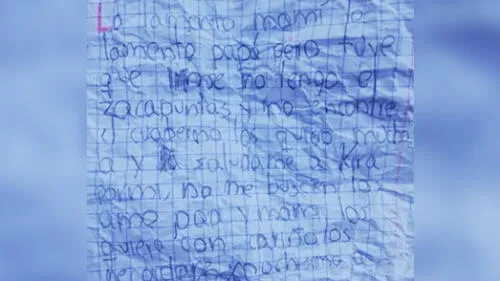 Lo lamento mami lo
lamento papá pero tuve
que irme no tengo el
zacapuntas y no encontre
el cuaderno los quiero mucho
a y saludame a Kira
pormi, no me busquen los
ame paa y mami los
quiere con cariño los
muchisimo a